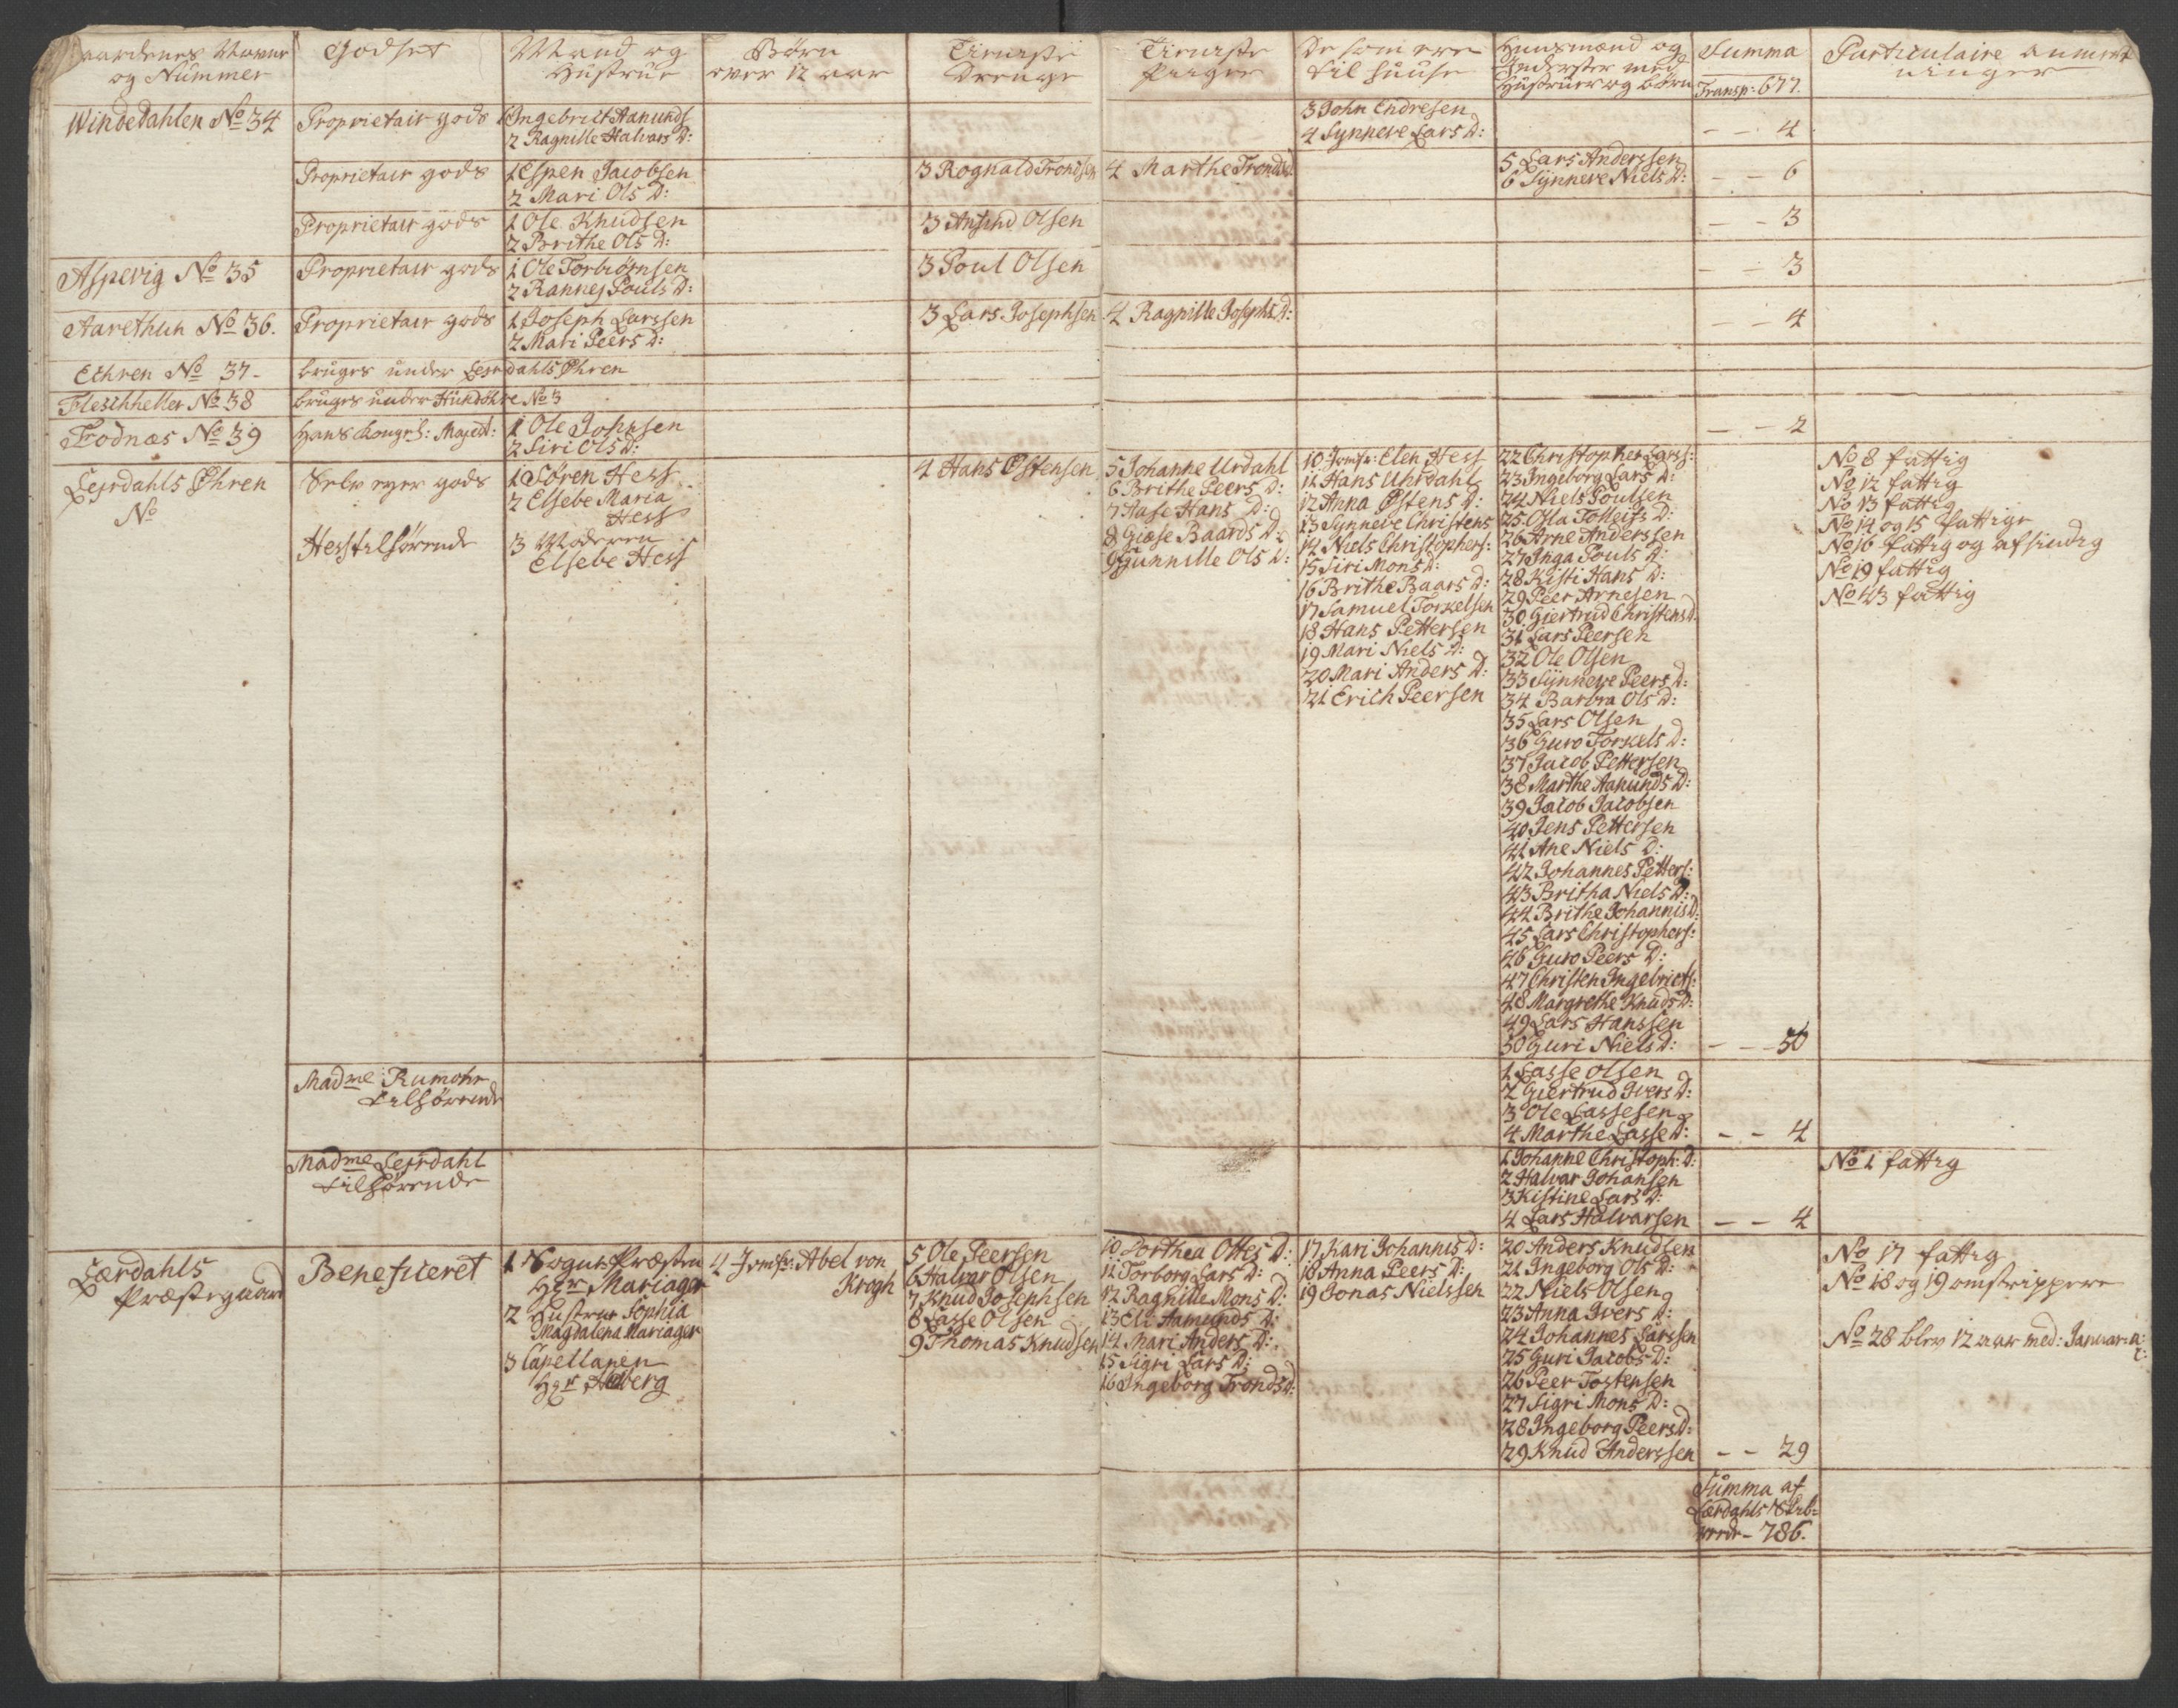 Gaardenes Navne
og Nummer
Godset
Mand og
Hustrue
Børn
over 12 aar
Tieniste
Drenge
Tieniste
Piiger
De som ere
til huuse
Huusmænd og
Inderster med
Hustruer og børn
Summa
Transp: 677.
Particulaire anmerk
ninger
Windedahlen No 34
Proprietair gods
1 Ingebrict Aamunds
2 Ragnille Halvars D:
3 John Endresen
4 Synneve Lars D:
- - 4
Proprietair gods
1 Espen Jacobsen
2 Mari Ols D:
3 Rognald Trondsen
4 Marthe Tronds D:
5 Lars Anderssen
6 Synneve Niels D:
- - 6
Proprietair gods
1 Ole Knudsen
2 Brithe Ols D:
3 Ansund Olsen
- - 3
Aspevig No 35
Proprietair gods
1 Ole Torbiørnsen
2 Rannej Pouls D:
3 Poul Olsen
- - 3
Aarethun No 36.
Proprietair gods
1 Joseph Larssen
2 Mari Peers D:
3 Lars Josephsen
4 Ragnille Josephs D:
- - 4
Echren No 37-
bruges under Lejrdahls Øhren
Fleschheller No 38
bruges under Hundøhre No 3
Fodnæs No 39
Hans Kongel: Mayest:
1 Ole Johnsen
2 Siri Ols D:
- - 2
Lejrdahls Øhren
No
Selv eyer gods
1 Søren Hess
2 Elsebe Maria
Hess
Hess tilhørende
3 Moderen
Elsebe Hess
4 Hans Østensen
5 Johanne Urdahl
6 Brithe Peers D:
7 Aase Hans D:
8 Giøse Baards D:
9 Gunnille Ols D:
10 Jomfr: Elen Hess
11 Hans Uhrdahl
12 Anna Østens D:
13 Synneve Christens
14 Niels Christophers:
15 Siri Mons D:
16 Brithe Baars D:
17 Samuel Torkelsen
18 Hans Pettersen
19 Mari Niels D:
20 Mari Anders D:
21 Erich Peersen
22 Christopher Larss:
23 Ingeborg Lars D:
24 Niels Poulsen
25 Ofla Tolleifs D:
26 Arne Anderssen
27 Inga Pouls D:
28 Kisti Hans D:
29 Peer Arnesen
30 Giertrud Christens D.
31 Lars Peersen
32 Ole Olsen
33 Synneve Peers D:
34 Barbra Ols D:
35 Lars Olsen
36 Guro Torkels D:
37 Jacob Pettersen
38 Marthe Aamunds D:
39 Jacob Jacobsen
40 Jens Pettersen
41 Ane Niels D:
42 Johannes Petters:
43 Britha Niels D:
44 Brithe Johannis D:
45 Lars Christophers:
46 Guro Peers D:
47 Christen Ingebricts:
48 Margrethe Knuds D:
49 Lars Hanssen
50 Guri Niels D:
- - 50
No 8 fattig
No 12 fattig
No 13 fattig
No 14 og 15 fattige
No 16 fattig og afsindig
No 19 fattig
No 43 fattig
Madme Rumohr
tilhørende
1 Lasse Olsen
2 Giertrud Ivers D:
3 Ole Lassesen
4 Marthe Lasse D:
- - 4
Madme Lejrdahl
tilhørende
1 Johanne Christoph: D:
2 Halvar Johansen
3 Kistine Lars D:
4 Lars Halvarsen
- - 4
No 1 fattig
Lærdahls
Præstegaard
Beneficeret
1 Sogne Præsten
Hgr Mariager
2 Hustrue Sophia
Magdalena Mariager
3 Capellanen
Hgr Aaberg
4 Jomfr: Abel von
Krogh
5 Ole Peersen
6 Halvar Olsen
7 Knud Josephsen
8 Lasse Olsen
9 Thomas Knudsen
10 Dorthea Ottes D:
11 Torborg Lars D:
12 Ragnille Mons D:
13 Eli Aamunds D:
14 Mari Anders D:
15 Sigri Lars D:
16 Ingeborg Tronds D:
17 Kari Johannis D:
18 Anna Peers D:
19 Jonas Nielssen
20 Anders Knudsen
21 Ingeborg Ols D:
22 Niels Olsen
23 Anna Ivers D:
24 Johannes Larssen
25 Guri Jacobs D:
26 Peer Tostensen
27 Sigri Mons D:
28 Ingeborg Peers D:
29 Knud Anderssen
- - 29
No 17 fattig
No 18 og 19 omstrippere
No 28 blev 12 aar med: Januar: a: c:
Summa af
Lærdahls Skib-
rede - 786.